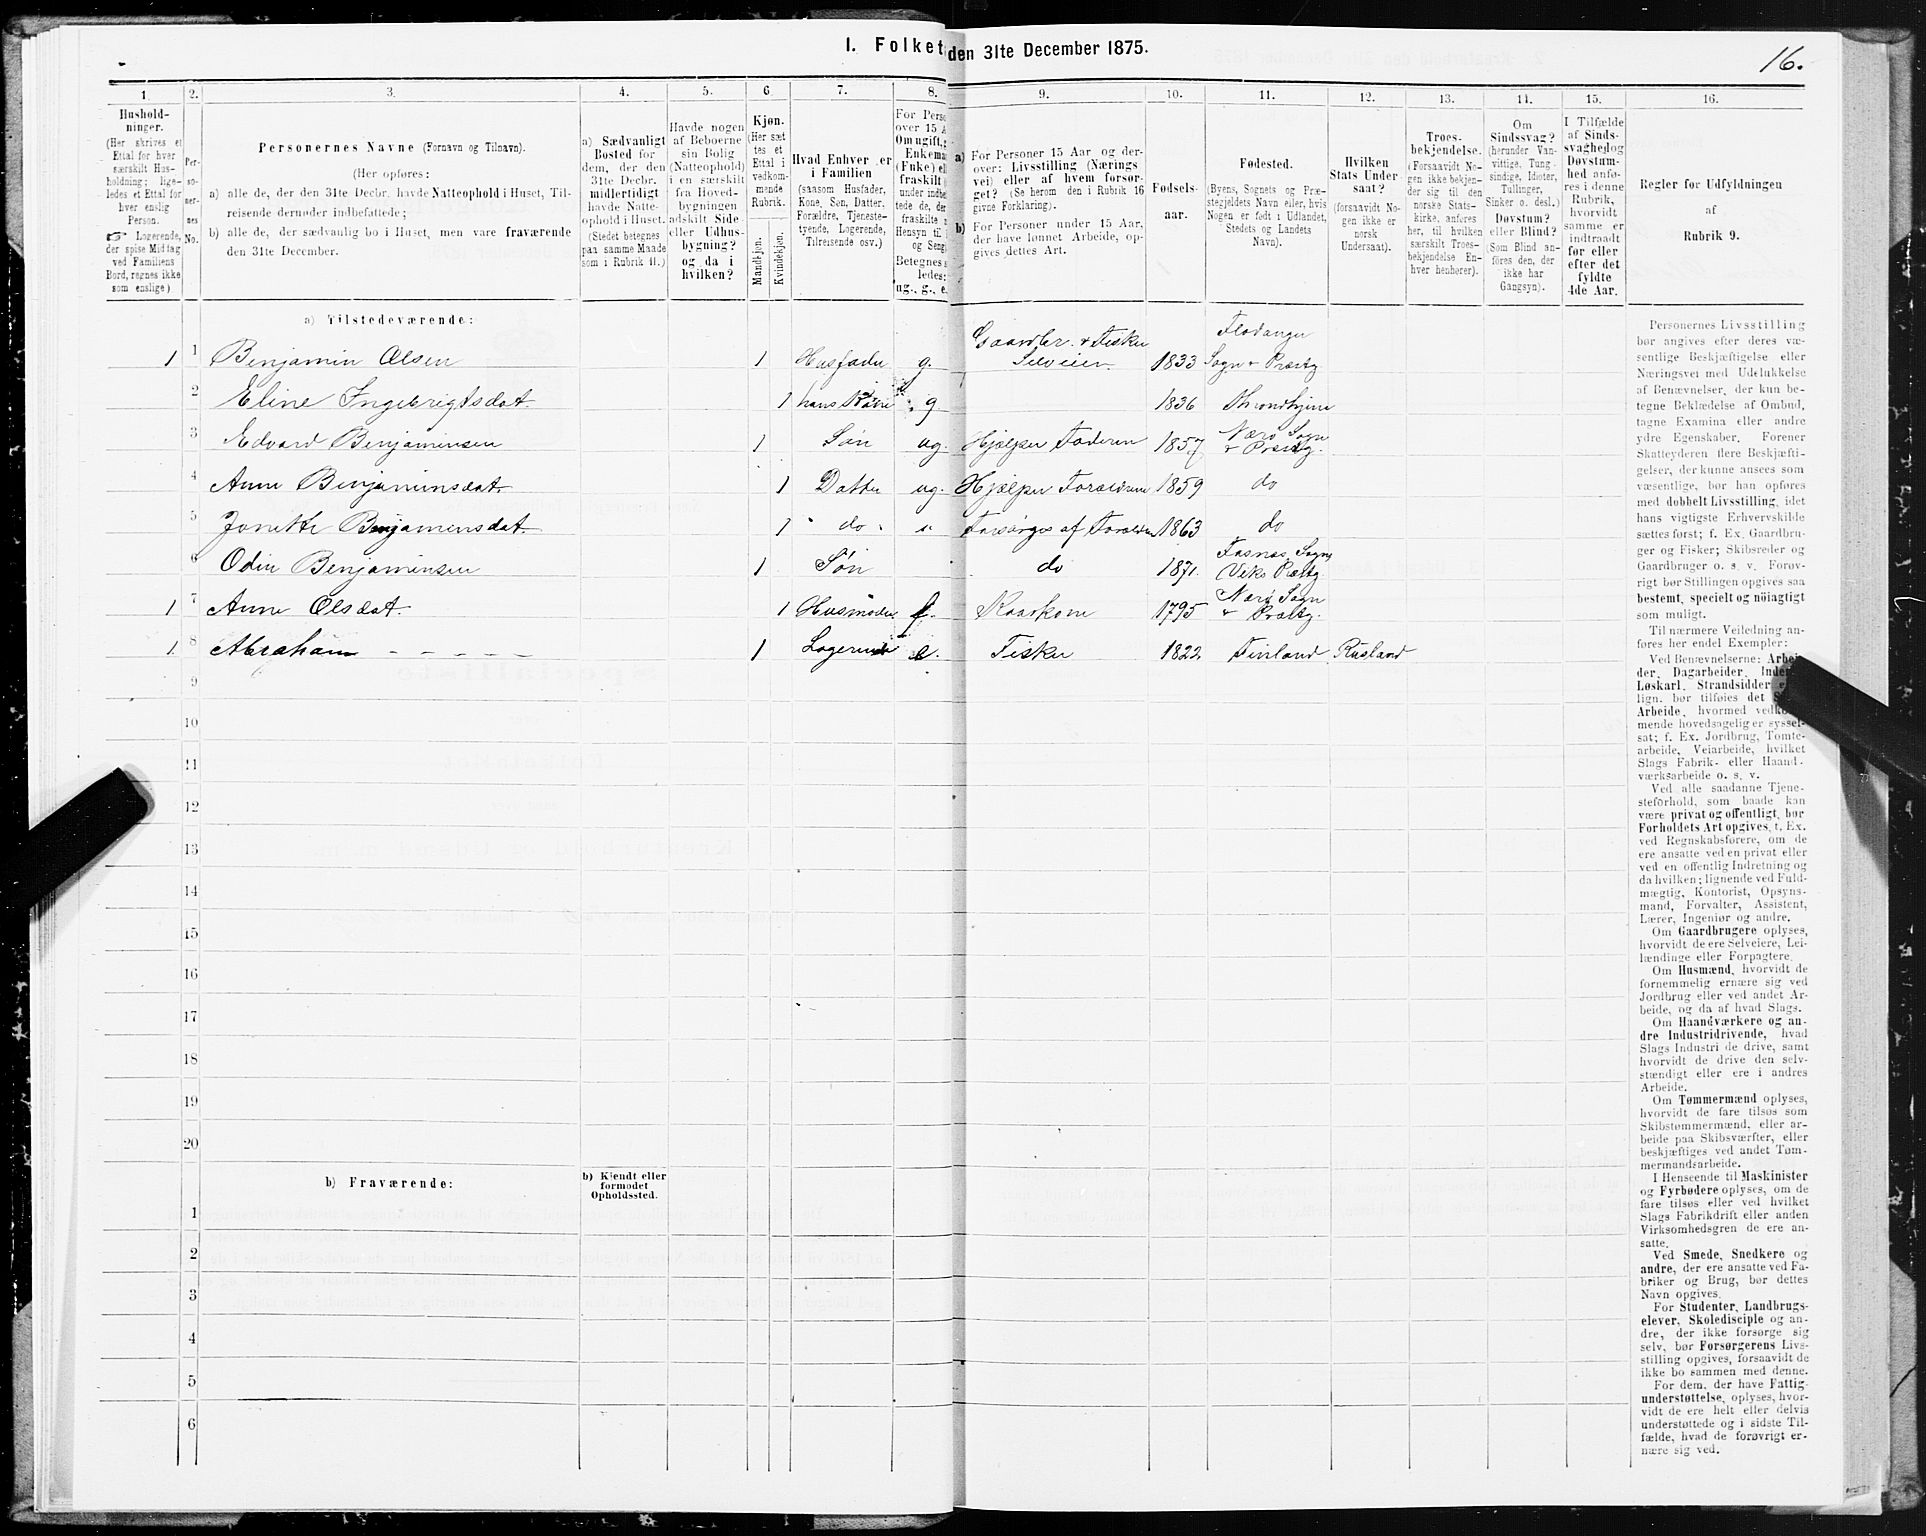 I. Folket
den 31te December 1875.
16.
1.
2.
3.
4.
5.
6.
7.
8.
9.
10.
11.
12.
13.
14.
15.
16.
Hushold-
ninger.
(Her skrives et
Ettal for hver
særskilt Hus-
holdning; lige-
ledes et Ettal for
hver enslig
Person.
☞ Logerende,
der spise Middag
ved Familiens
Bord, regnes ikke
som enslige)
Per-
so-
ner-
nes
No.
Personernes Navne (Fornavn og Tilnavn).
(Her opføres:
a) alle de, der den 31te Decbr. havde Natteophold i Huset, Til-
reisende derunder indbefattede;
b) alle de, der sædvanlig bo i Huset, men vare fraværende
den 31te December.
a) Sædvanligt
Bosted for
dem, der den
31te Decbr.
midlertidigt
havde Natte-
ophold i Huset.
(Stedet betegnes
paa samme Maade
som i Rubrik 11.)
Havde nogen
af Beboerne
sin Bolig
(Natteophold)
i en særskilt
fra Hoved-
bygningen
adskilt Side-
eller Udhus-
bygning?
og da i
hvilken?
Kjøn.
(Her sæt-
tes et
Ettal i
vedkom-
mende
Rubrik.
Mandkjøn.
Kvindekjøn.
Hvad Enhver er
i Familien
(saasom Husfader,
Kone, Søn, Datter,
Forældre, Tjeneste-
tyende, Logerende,
Tilreisende osv.)
For Perso
over 15 A
Om ugift, g
Enkema
(Fnke) ell
fraskilt
under indbe
tede de, der
fraskilte
Hensyn til
og Seng
Betegnes s
ledes:
ug., g., e.
a) For Personer 15 Aar og der-
over: Livsstilling (Nærings
vei) eller af hvem forsør-
get? (Se herom den i Rubrik 16
givne Forklaring).
b) For Personer under 15 Aar,
der have lønnet Arbeide, op-
gives dettes Art.
Fødsels-
aar.
Fødested.
(Byens, Sognets og Præ-
stegjeldets Navn eller, hvis
Nogen er født i Udlandet,
Stedets og Landets
Navn).
Hvilken
Stats Under-
saat?
(forsaavidt No-
gen ikke er
norsk
Undersaat).
Troes-
bekjendelse.
(Forsaavidt No-
gen ikke bekjen-
der sig til den
norske Stats-
kirke, anføres
her, til hvilken
særskilt Troes-
bekjendelse En-
hver henhører).
Om
Sindssvag?
(herunder Van-
vittige, Tung-
sindige, Idioter,
Tullinger,
Sinker o. desl.)
Døvstum?
eller Blind?
(Som Blind an-
føres den, der
ikke har
Gangsyn).
I Tilfælde
af Sinds-
svaghed og
Døvstum-
hed anfø-
res i denne
Rubrik,
hvorvidt
samme er
indtraadt
før eller
efter det
fyldte
4de Aar.
Regler for Udfyldningen
af
Rubrik 9.
a) Tilstedeværende:
1 1 Benjamin Olsen 1 Husfader g. Gaardbr. + Fisker Selveier 1833 Flodanger Sogn + Præstg.
2 Eline Ingebrigtsdat. 1 hans Kone g. 1836 Throndhjem
3 Edvard Benjaminsen 1 Søn ug. Hjælper Faderen 1857 Nærø Sogn + Præstg.
4 Anne Benjaminsdat. 1 Datter ug. Hjælper Forældrene 1859 do
5 Jonette Benjaminsdat. 1 do Forsørges af Forældrene 1863 do
6 Odin Benjaminsen 1 Søn do 1871. Fosnæs Sogn, Viks Præstg.
1 7 Anne Olsdat. 1 Husmoder f. Kaarkone 1795 Nærø Sogn + Præstg.
1. 8 Abraham - - - - - 1 Logerende e. Fisker 1822 Finland Rusland
9
10
11
12
13
14
15
16
17
18
19
20
b) Fraværende:
b) Kjendt eller
formodet
Opholdssted.
1
2
3
4
5
6
Personernes Livsstilling
bør angives efter deres væ-
sentlige Beskjæftigelse eller
Næringsvei med Udelukkelse
af Benævnelser, der kun be-
tegne Beklædelse af Ombud,
tagne Examina eller andre
ydre Egenskaber. Forener
Skatteyderen flere Beskjæfti-
gelser, der kunne ansees som
væsentlige, bør han opføres
med dobbelt Livsstilling, idet
hans vigtigste Erhvervskilde
sættes først; f. Ex. Gaardbru-
ger og Fisker; Skibsreder og
Gaardbruger o. s. v. Forøv-
rigt bør Stillingen opgives saa
bestemt, specielt og nöiagtigt
som muligt.
Til nærmere Veiledning an-
føres her endel Exempler:
Ved Benævnelserne: Arbei-
der, Dagarbeider, Inder
Løskarl, Strandsidder e
lign. bør tilføies det S
Arbeide, hvormed vedko
mende hovedsagelig er syssel-
sat; f. Ex. Jordbrug, Tomte-
arbeide, Veiarbeide, hvilket
Slags Fabrik- eller Haand-
værksarbeide o. s. v.
Ved alle saadanne Tjene-
steforhold, som baade kan
være privat og offentligt, bør
Forholdets Art opgives, t. Ex.
ved Regnskabsførere, om de
ere ansatte ved en privat eller
ved en offentlig Indretning og
da hvilken; lignende ved Fuld-
mægtig, Kontorist, Opsyns-
mand, Forvalter, Assistent,
Lærer, Ingeniør og andre.
Om Gaardbrugere oplyses,
hvorvidt de ere Selveiere, Lei-
lændinge eller Forpagtere.
Om Husmænd, hvorvidt de
fornemmelig ernære sig ved
Jordbrug eller ved andet Ar-
beide, og da af hvad Slags.
Om Haandværkere og an-
dre Industridrivende, hvad
Slags Industri de drive, samt
hvorvidt de drive den selv-
stændigt eller ere i andres
Arbeide.
Om Tømmermænd oplyses,
hvorvidt de fare tilsøs som
Skibstømmermænd, eller ar-
beide paa Skibsværfter, eller
beskjæftiges ved andet Tøm-
mermandsarbeide.
I Henseende til Maskinister
og Fyrbødere oplyses, om de
fare tilsøs eller ved hvilket
Slags Fabrikdrift eller anden
Virksomhedsgren de ere an-
satte.
Ved Smede, Snedkere og
andre, der ere ansatte ved Fa-
briker og Brug, bør dettes
Navn opgives.
For Studenter, Landbrugs-
elever, Skoledisciple og an-
dre, der ikke forsørge sig
selv, bør Forsørgerens Livs-
stilling opgives, forsaavidt de
ikke bo sammen med denne.
For dem, der have Fattig-
understøttelse, oplyses, hvor-
vidt de ere helt eller delvis
understøttede og i sidste Til-
fælde, hvad de forøvrigt er-
nære sig ved.